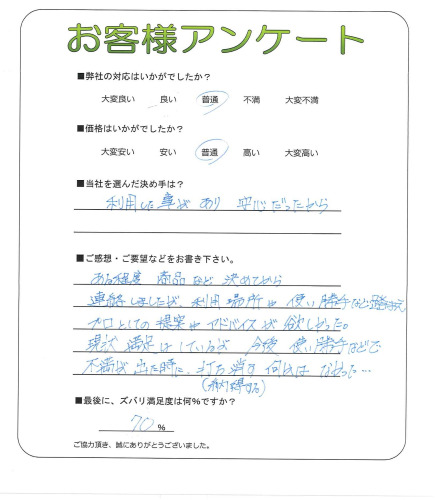 お客様アンケート
■弊社の対応はいかがでしたか?
大変良い 良い 普通 不満 大変不満
■価格はいかがでしたか?
大変安い 安い 普通 高い 大変高い
■当社を選んだ決め手は?
利用した事があり 安心だったから
■ご感想・ご要望などをお書き下さい。
ある程度 商品など 決めてから
連絡しましたが、利用場所や使い勝手など踏まえ
プロとしての提案やアドバイスが欲しかった。
現状 満足はしているが 今後 使い勝手などで
不満が出た時に、打ち消す 何かは なかった…
(納得する)
■最後に、ズバリ満足度は何%ですか?
70 %
ご協力頂き、誠にありがとうございました。